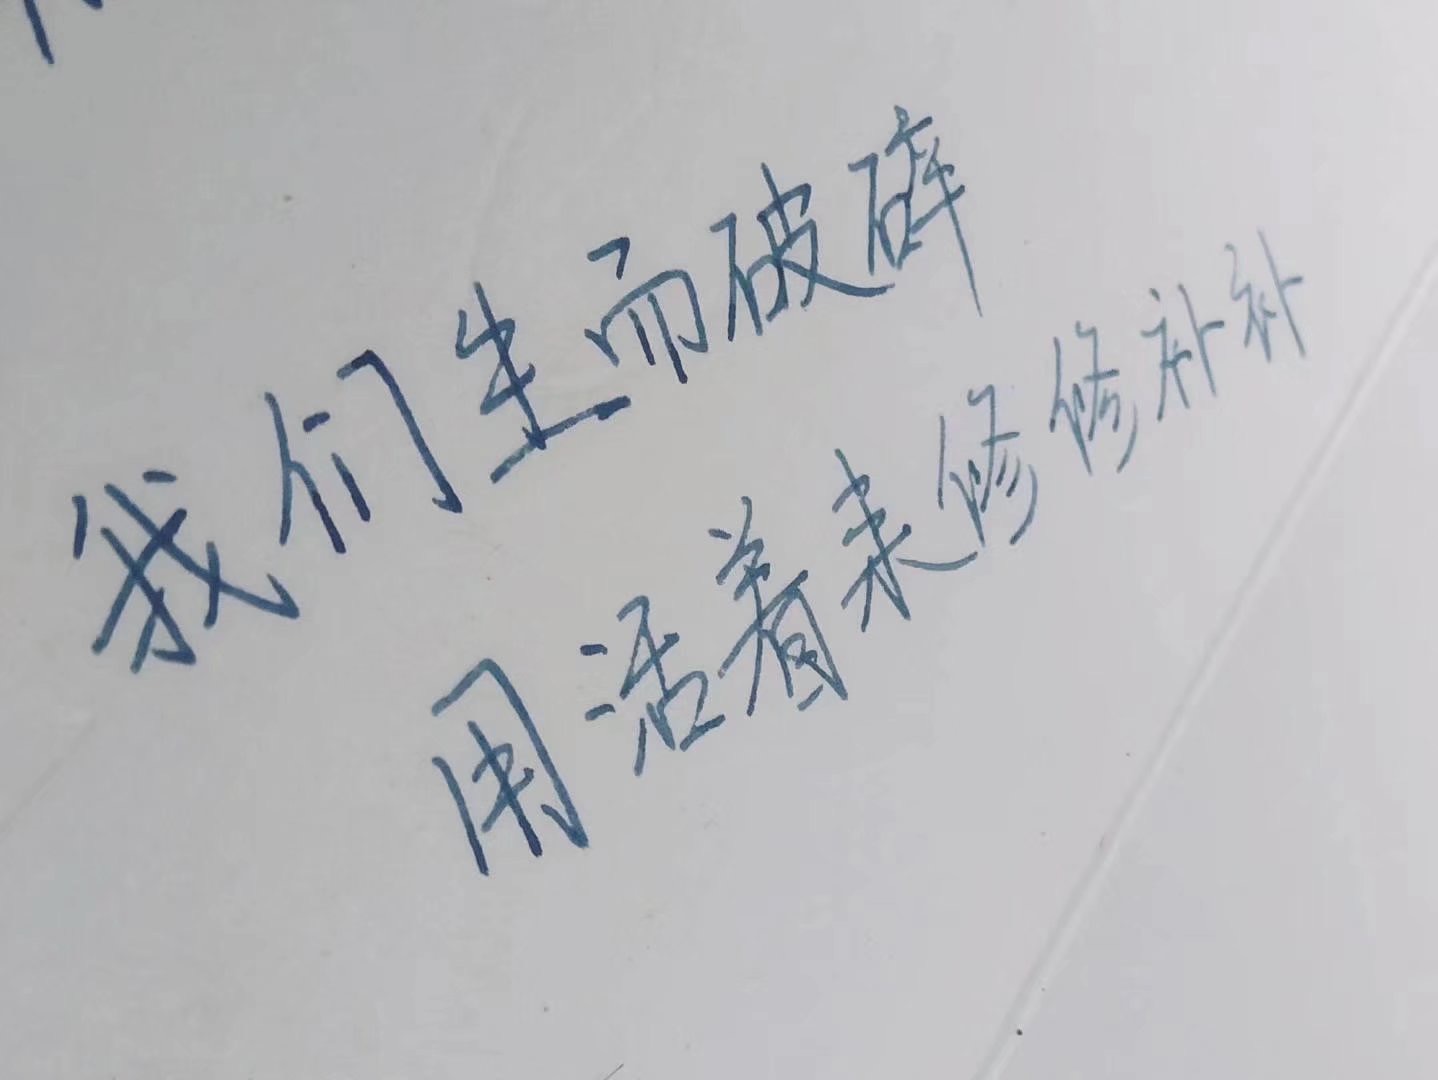 我们生而破碎
用活着来修修补补